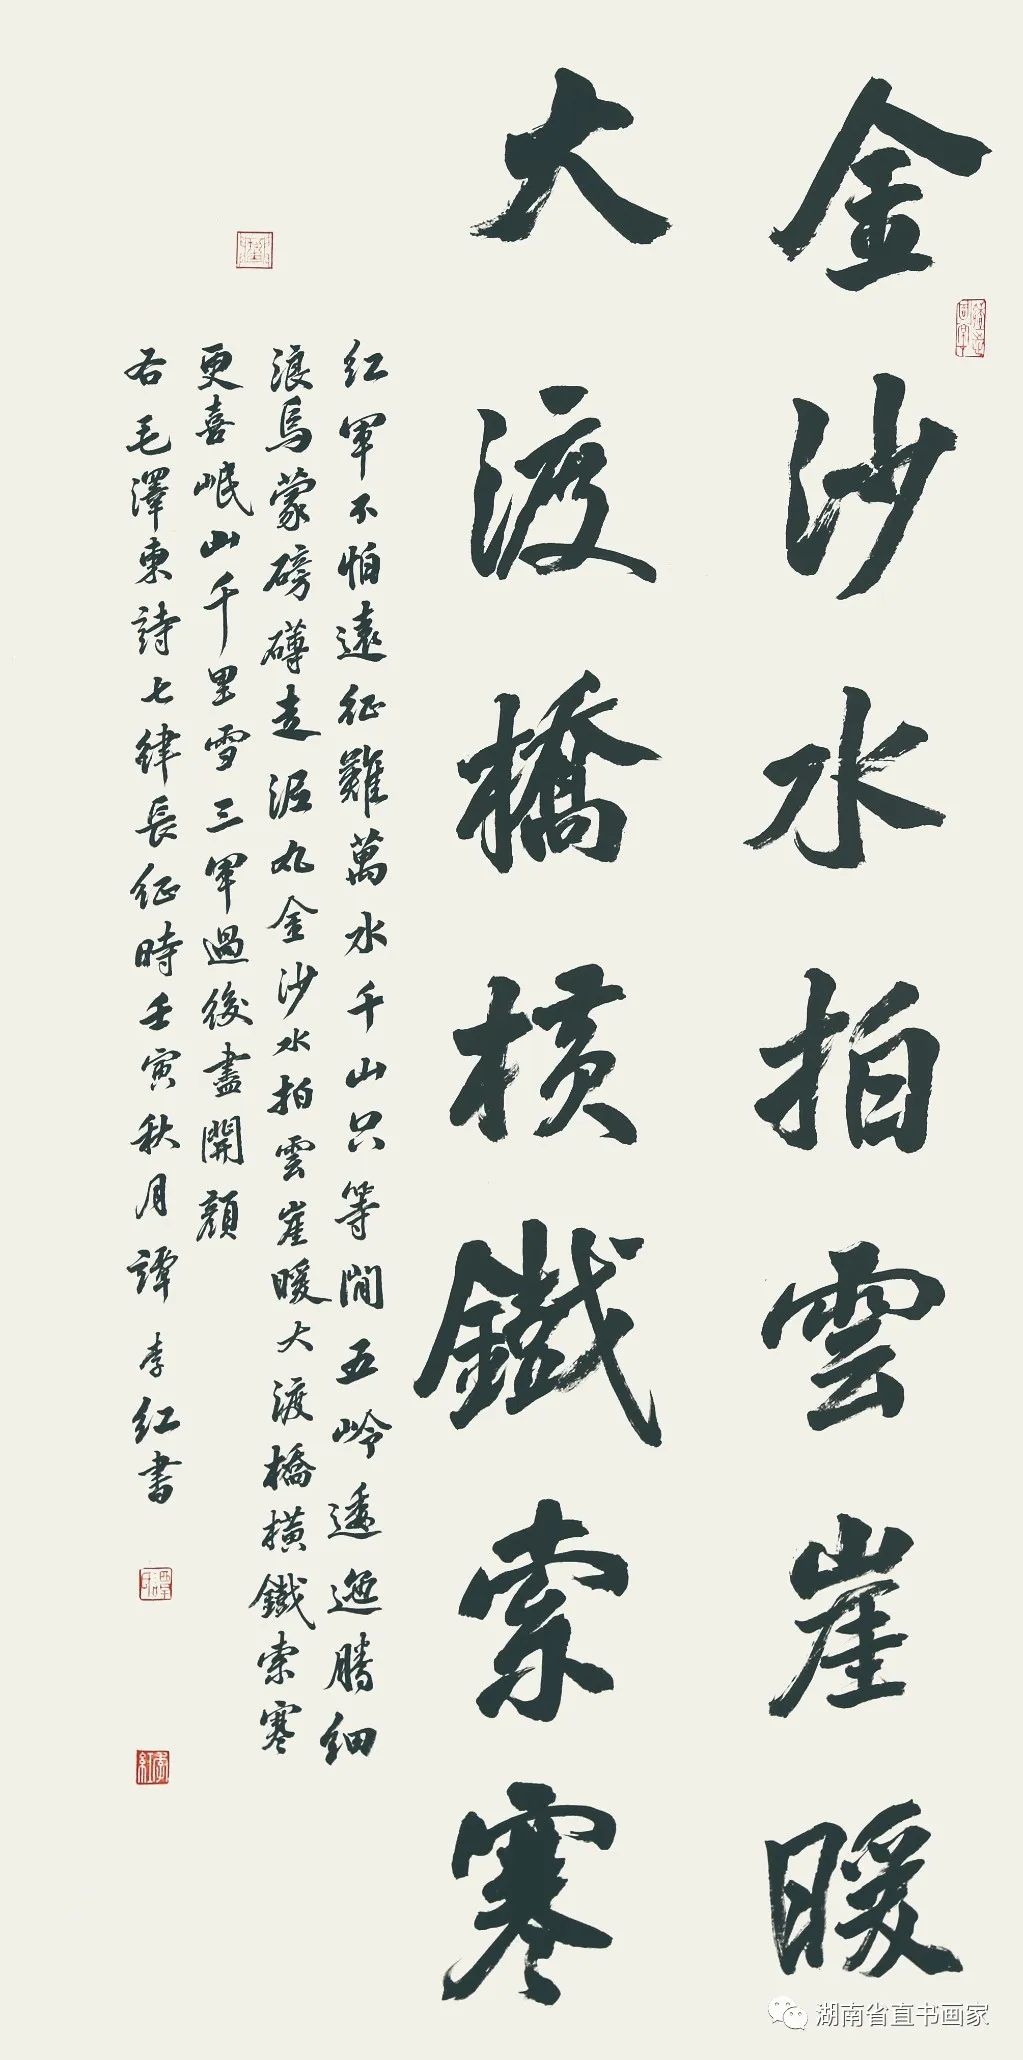 金沙水拍雲崖暖
大渡橋橫鐵索寒
紅軍不怕遠征難萬水千山只等閒五岭逶迤腾细
浪烏蒙磅礴走泥丸金沙水拍雲崖暖大渡橋橫鐵索寒
更喜岷山千里雪三軍過後盡開顏
右毛澤東詩七律長征時壬寅秋月譚李红書
湖南省直书画家